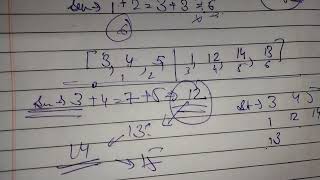 1+2=3+3=6
6
[3, 4, 5 | 1, 12, 14, 13]
0 1 2 3 4 5 6
3+4=7+5=12
13
14
15
3 4 5
1 12 14
13